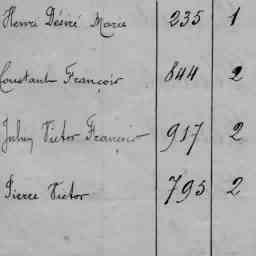 Henri Désiré Marie 235 1
Constant François 844 2
Jules Victor François 917 2
Pierre Victor 795 2